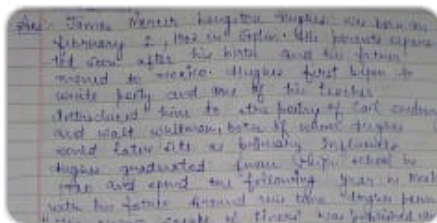 Ans:- James Mercer Langston Hughes was born on
february 2, 1902 in Joplin. His parents separa
ted soon after his birth and his father
moved to mexico. Hughes first began to
write and one of his teacher
introduced him to the poetry of Carl
and walt whitman, both of whom Hughes
would later cite as primary influences
Hughes graduated from school in
and spent the following year in
with his father Around this time
of rivers" was published